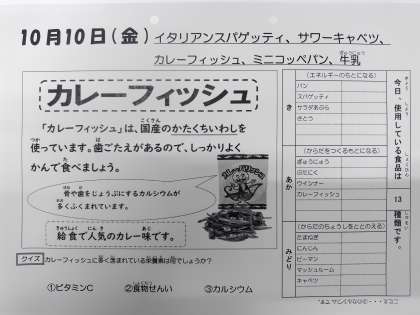 10月10日(金) イタリアンスパゲッティ、サワーキャベツ、
カレーフィッシュ、ミニコッペパン、牛乳
カレーフィッシュ
「カレーフィッシュ」は、国産のかたくちいわしを
使っています。歯ごたえがあるので、しっかりよく
かんで食べましょう。
骨や歯をじょうぶにするカルシウムが
多くふくまれています。
給食で人気のカレー味です。
クイズ カレーフィッシュに多く含まれている栄養素は何でしょうか？
①ビタミンC ②食物せんい ③カルシウム
き
(エネルギーのもとになる)
パン
スパゲッティ
サラダあぶら
さとう
あか
(からだをつくるもとになる)
ぎゅうにゅう
ぶたにく
ウインナー
カレーフィッシュ
みどり
(からだのちょうしをととのえる)
たまねぎ
にんじん
ピーマン
マッシュルーム
キャベツ
今日、使用している食品は
13
種類です。